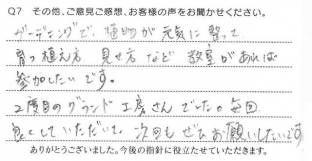 Q7 その他、ご意見ご感想、お客様の声をお聞かせください。
ガーデニングで、植物が元気に整って
育つ植え方 見せ方など 教室があれば
参加したいです。
2度目のグランド工房さんでした。毎回
良くしていただいて、次回もぜひお願いしたいです
ありがとうございました。今後の指針に役立たせていただきます。